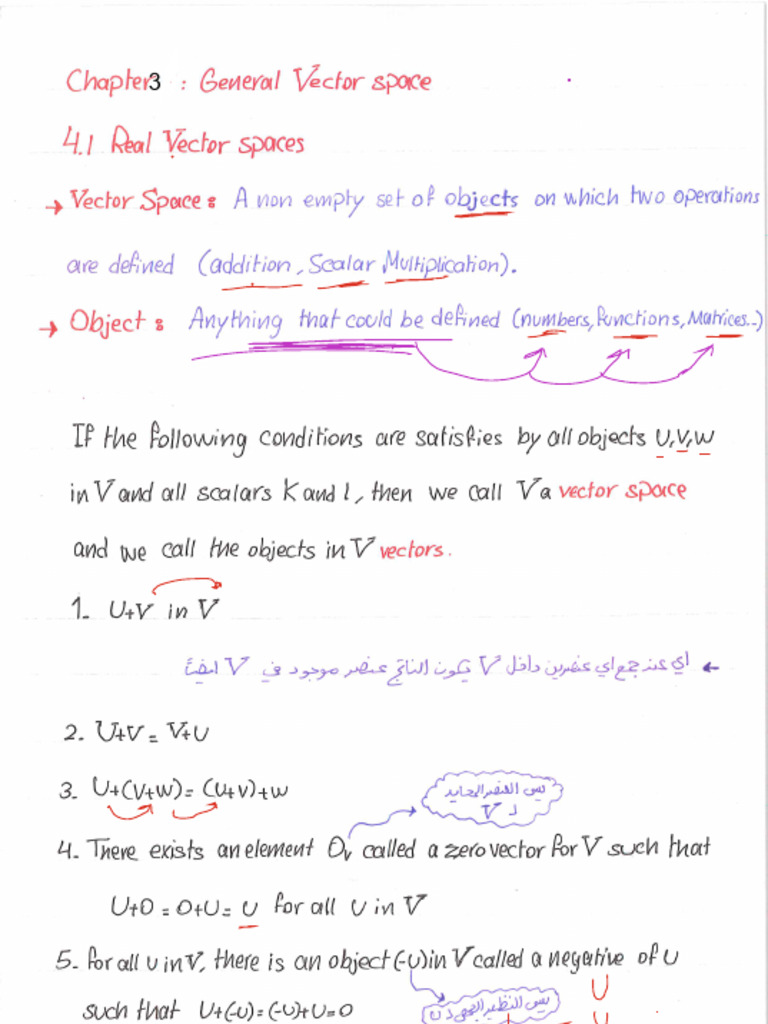 Chapter3 : General Vector space
4.1 Real Vector spaces
→ Vector Space : A non empty set of objects on which two operations
are defined (addition, Scalar Multiplication).
→ Object : Anything that could be defined (numbers, functions, Matrices..)
If the following conditions are satisfies by all objects U,V,W
in V and all scalars K and l, then we call V a vector space
and we call the objects in V vectors.
1. U+V in V
← أي عند جمع اي عنصرين داخل V يكون الناتج عنصر موجود في V ايضاً
2. U+V = V+U
3. U+(V+W)= (U+V)+W
يسمى العنصر المحايد
لـ V
4. There exists an element 0v called a zero vector for V such that
U+0 = 0+U= U for all U in V
5. for all u in V, there is an object (-u) in V called a negative of U
such that U+(-U)=(-U)+U=0
يسمى النظير الجمعي لـ U
U
U